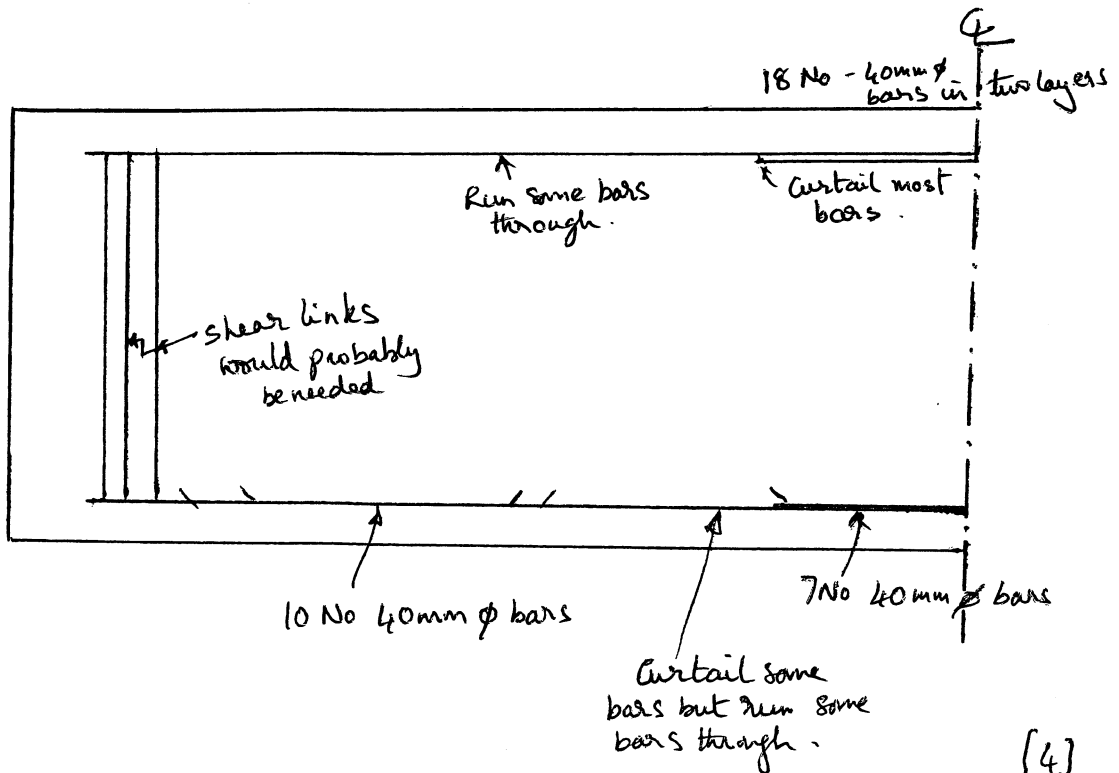 ℄
18 No - 40mm ϕ
bars in two layers
Run some bars
through.
Curtail most
bars.
shear links
would probably
be needed
10 No 40mm ϕ bars
7 No 40mm ϕ bars
Curtail some
bars but run some
bars through.
[4]